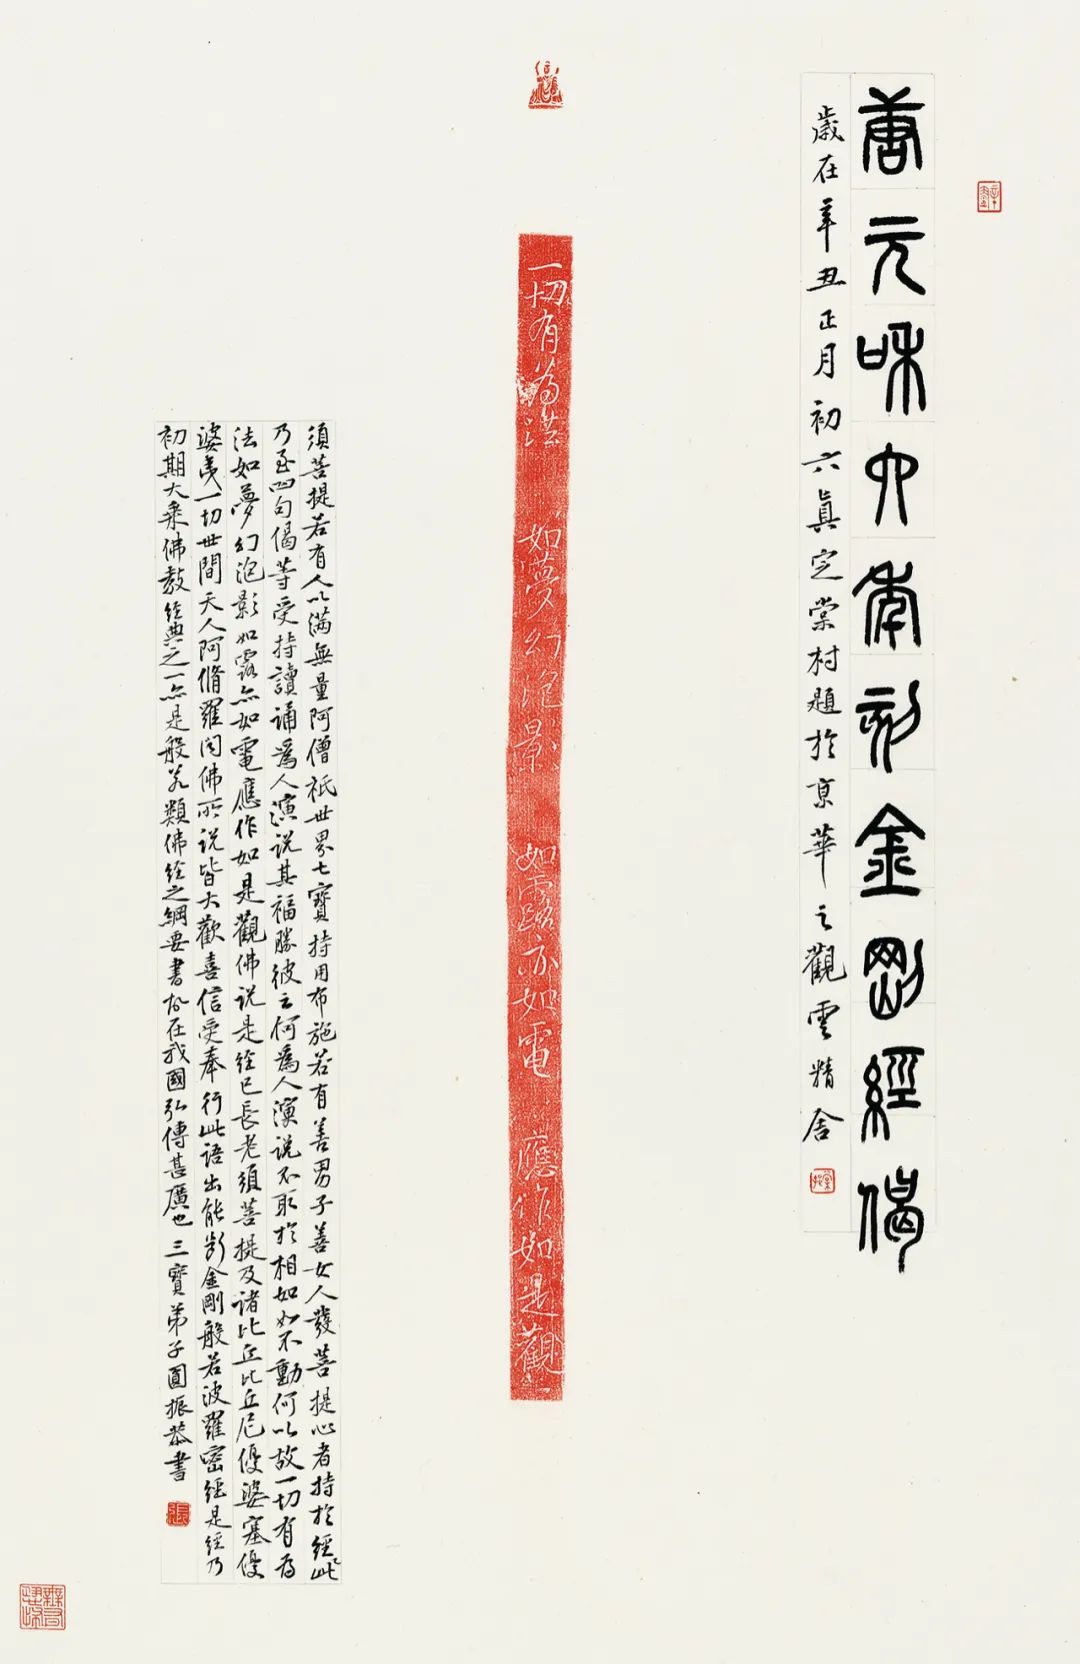 唐元和六年刻金剛經偈
歲在辛丑正月初六真定棠村題於京華之觀雲精舍
一切有為法 如夢幻泡影 如露亦如電 應作如是觀
須菩提若有人以滿無量阿僧祇世界七寶持用布施若有善男子善女人發菩提心者持於經此
乃至四句偈等受持讀誦為人演說其福勝彼云何為人演說不取於相如如不動何以故一切有為
法如夢幻泡影如露亦如電應作如是觀佛說是經已長老須菩提及諸比丘比丘尼優婆塞優
婆夷一切世間天人阿脩羅聞佛所說皆大歡喜信受奉行此語出能斷金剛般若波羅密經是經乃
初期大乘佛教經典之一亦是般若類佛經之綱要書故在我國弘傳甚廣也三寶弟子圓振恭書